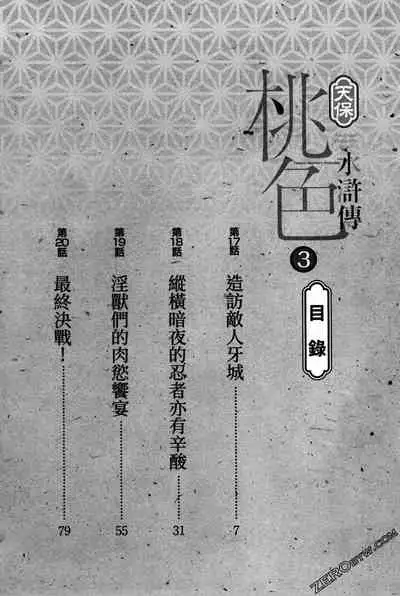 天保
桃色
水滸傳
3
目錄
第17話
造訪敵人牙城 7
第18話
縱橫暗夜的忍者亦有辛酸 31
第19話
淫獸們的肉慾饗宴 55
第20話
最終決戰！ 79
ZEROBYW.COM